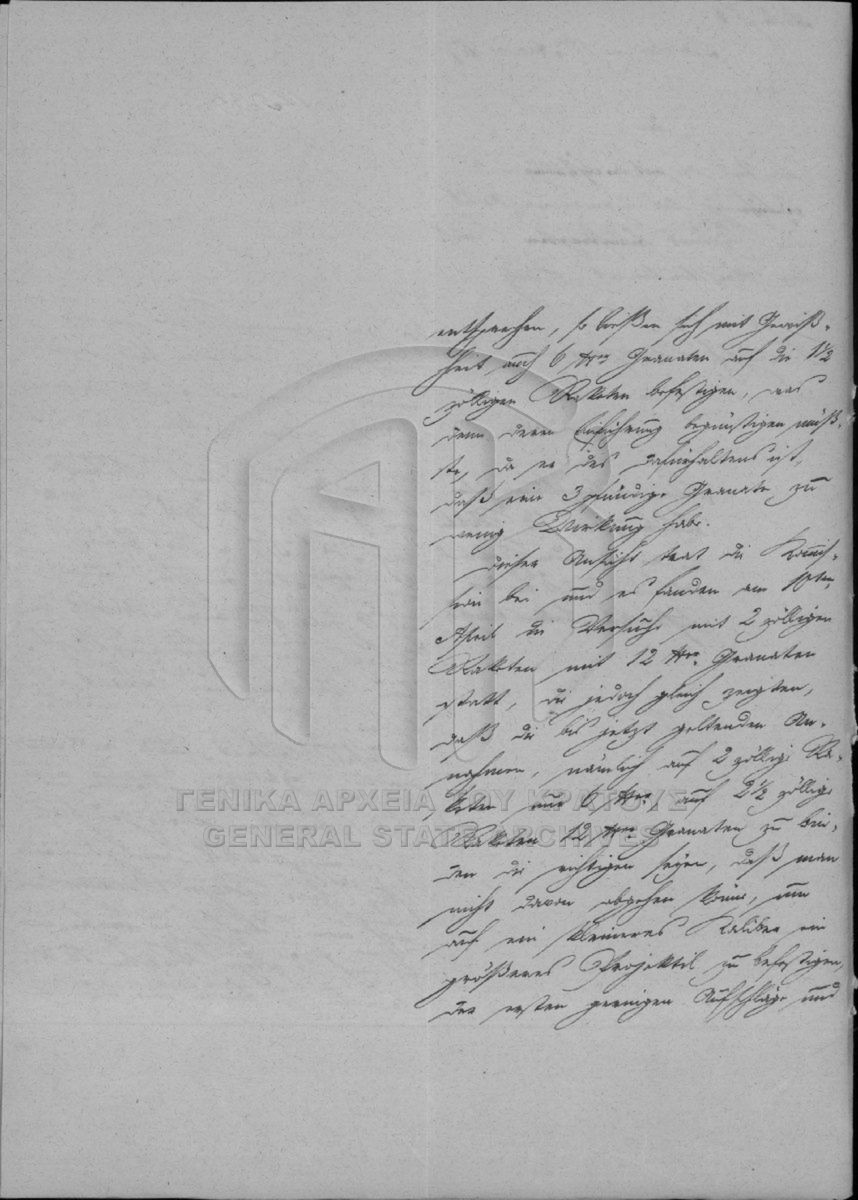 entsprechen, so ließen sich mit Gewiß-
heit auch 6 Granaten auf die 1½
zölligen Raketen befestigen, was
denn deren Einführung begünstigen müß-
te, da er des Dafürhaltens ist,
daß eine 3 pfündige Granate zu
wenig Wirkung habe.
Dieser Ansicht trat die Kommis-
sion bei und es fanden am 10ten
April die Versuche mit 2 zölligen
Raketen mit 12 Granaten
statt, die jedoch gleich zeigten,
daß die bis jetzt geltenden An-
nahmen, nämlich auf 2 zöllige Ra-
keten nur 6 auf 2½ zöllige
Raketen 12 Granaten zu bin-
den die richtigen seyen, daß man
nicht davon abgehen könne, um
auf ein kleineres Kaliber ein
größeres Projektil zu befestigen,
der ersten Aufschläge und
ΓΕΝΙΚΑ ΑΡΧΕΙΑ ΤΟΥ ΚΡΑΤΟΥΣ
GENERAL STATE ARCHIVES